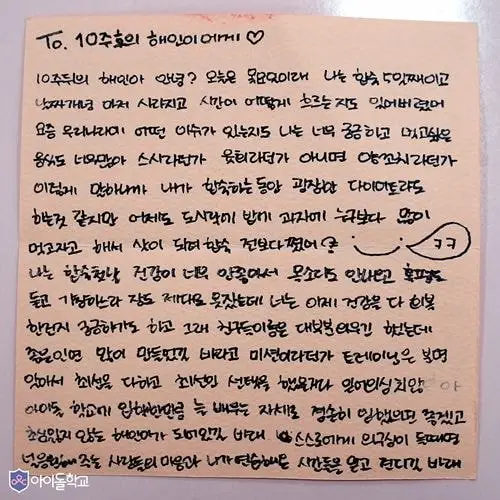 To. 10주후의 해인이에게 ♡
10주뒤의 해인아 안녕? 오늘은 목요일이래 나는 합숙 5일째이고
날짜개념 마저 사라지고 시간이 어떻게 흐르는지도 잊어버렸어
요즘 우리나라의 어떤 이슈가 있는지도 나는 너무 궁금하고 먹고싶은
음식도 너무많아 스시라던가 육회라던가 아니면 양꼬치라던가
이렇게 말하니까 내가 합숙하는동안 굉장한 다이어트라도
하는것 같지만 어제도 도시락에 밥에 과자에 누구보다 많이
먹고자고 해서 살이 되려합숙 전보다쪘어 ㅋㅋ
나는 합숙첫날 건강이 너무 안좋아서 목소리도 안나오고 혹평도
듣고 기침하느라 잠도 제대로 못잤는데 너는 이제 건강은 다 회복
한건지 궁금하기도 하고 그래 친구들이름은 대부분외우긴 했는데
좋은인연 많이 만들었길 바라고 미션이라던가 트레이닝은 보면
앞에서 최선을 다하고 최선의 선택을 했을거라 믿어의심치않아
아이돌 학교에 입학한만큼 늘 배우는 자세로 겸손히 임했으면 좋겠고
초심잃지 않는 해인이가 되어있길 바래 스스로에게 의구심이 들때면
널응원해 주는 사람들의 마음과 너가연습해온 시간들을 믿고 견디길 바래
아이돌학교